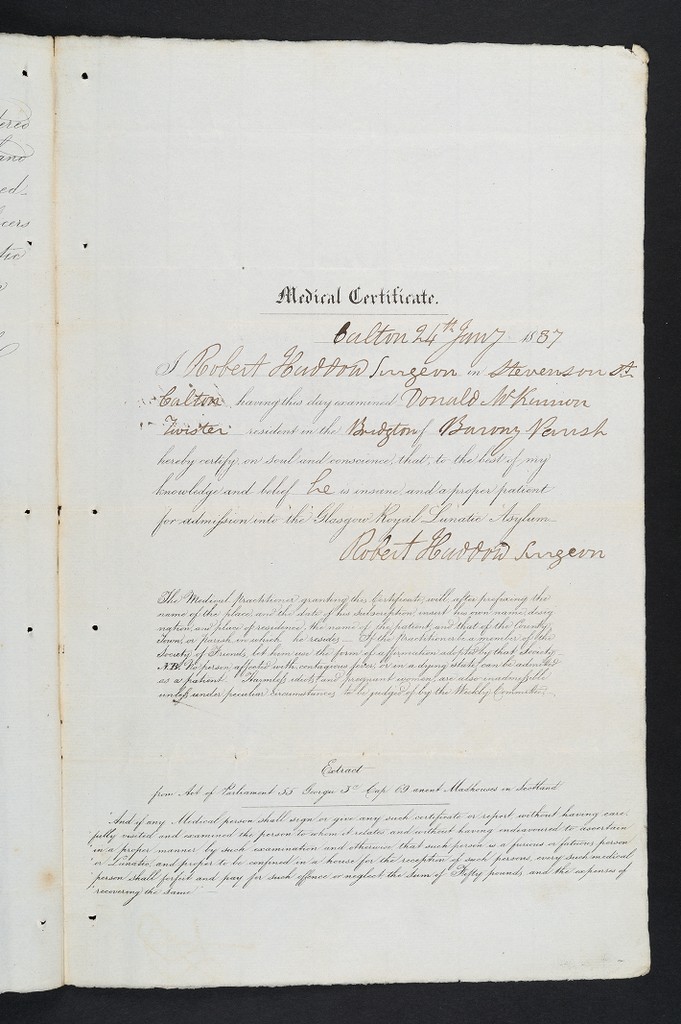 ered
and
ed-
cers
tic
Medical Certificate.
Calton 24th Jany 1837
I Robert Haddow Surgeon in Stevenson St.
Calton having this day examined Donald McKinnon
Twister resident in the Bridgton of Barony Parish
hereby certify, on soul and conscience, that, to the best of my
knowledge and belief he is insane, and a proper patient
for admission into the Glasgow Royal Lunatic Asylum
Robert Haddow Surgeon
The Medical practitioner granting this Certificate, will, after prefixing the
name of the place, and the date of his subscription, insert his own name, desig
nation, and place of residence, the name of the patient, and that of the County,
Town, or parish, in which he resides — If the practitioner be a member of the
Society of Friends, let him use the form of affirmation adopted by that Society—
N.B. No person, affected with contagious fever, or in a dying state, can be admitted
as a patient. Harmless idiots, and pregnant women, are also inadmissible
unless under peculiar circumstances to be judged of by the Weekly Committee.
Extract
from Act of Parliament 55 Georgii 3d Cap 69 anent Madhouses in Scotland
"And if any Medical person shall sign or give any such certificate or report without having care-
"fully visited and examined the person to whom it relates and without having endeavoured to ascertain
"in a proper manner by such examination and otherwise that such person is a furious or fatuous person
"or Lunatic, and proper to be confined in a house for the reception of such persons, every such medical
"person shall forfeit and pay for such offence or neglect, the sum of Fifty pounds, and the expenses of
"recovering the same"